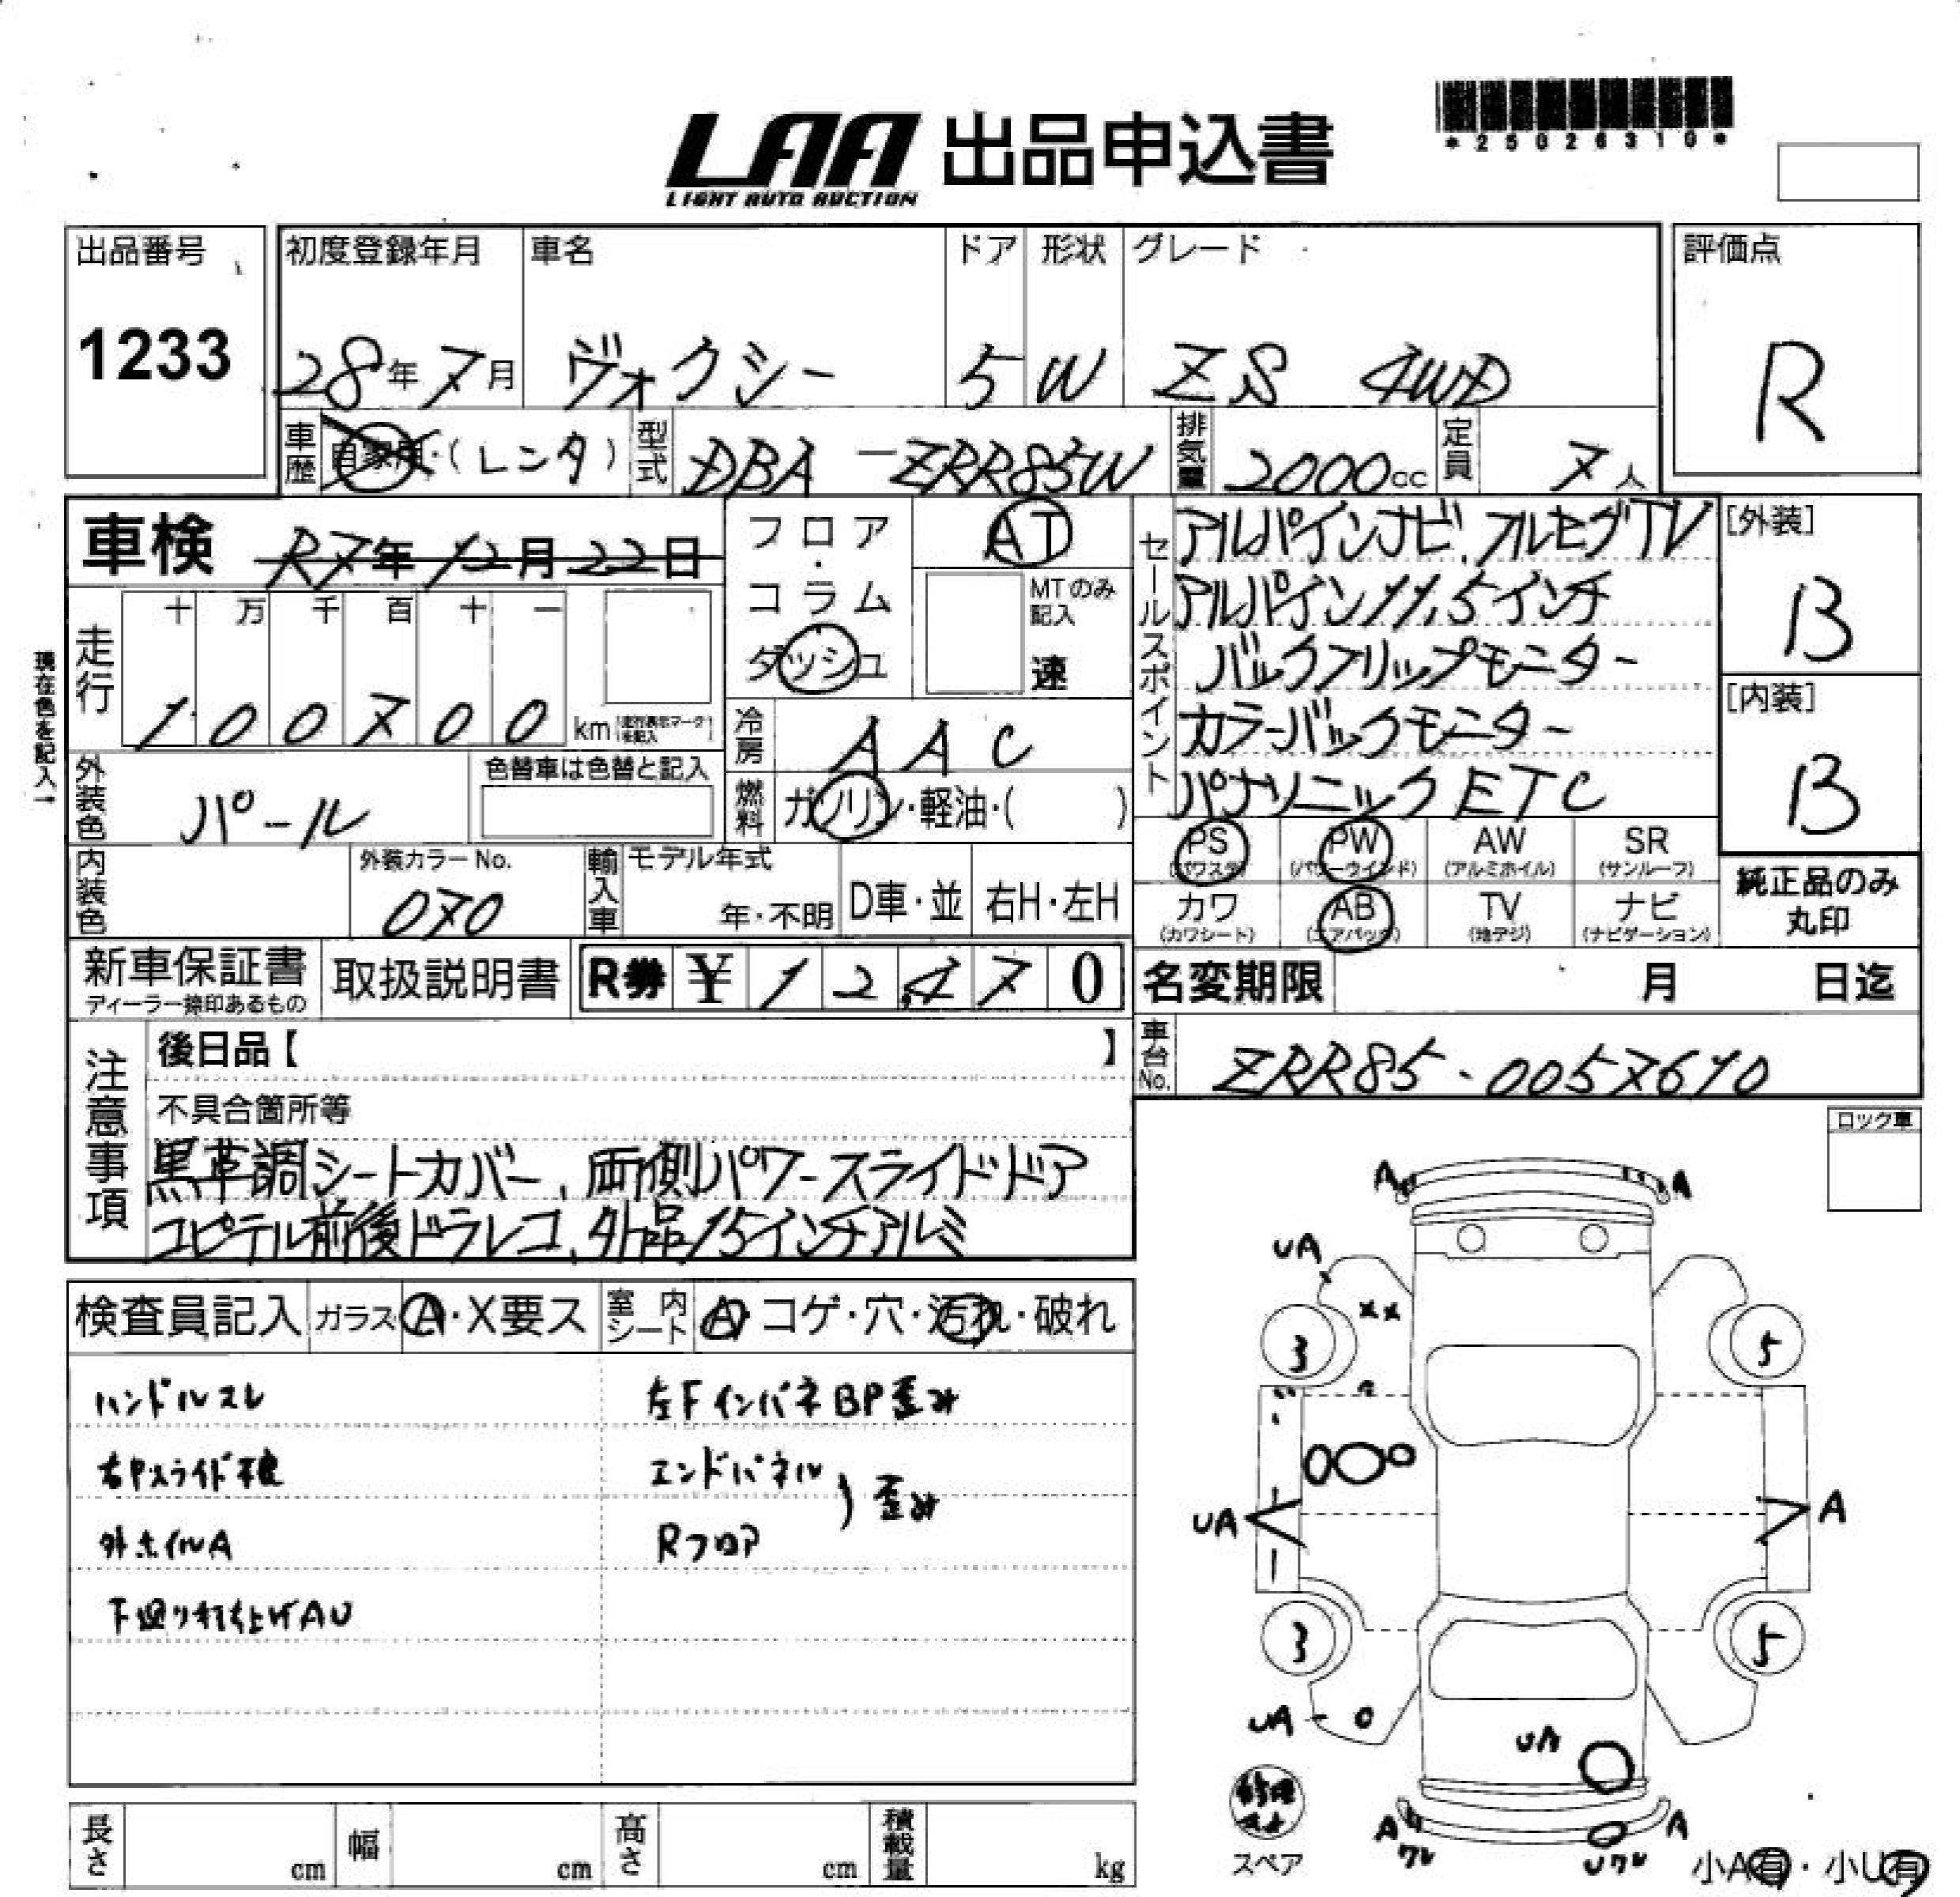 *25026310*
LAA 出品申込書
LIGHT AUTO AUCTION
出品番号
1233
初度登録年月
28年7月
車名
ヴォクシー
ドア
5
形状
W
グレード
ZS 4WD
評価点
R
車歴
自家用・(レンタ)
型式
DBA-ZRR85W
排気量
2000cc
定員
7人
車検 R7年12月22日
フロア・コラム
ダッシュ
AT
MTのみ記入
速
現在色を記入
走行
十 万 千 百 十 一
1 0 0 7 0 0 km
冷房
AAC
外装色
パール
色替車は色替と記入
燃料
ガソリン・軽油・( )
内装色
外装カラーNo.
070
輸入車
モデル年式
年・不明
D車・並
右H・左H
セールスポイント
アルパインナビ、フルセグTV
アルパイン11.5インチ
バックフリップモニター
カラーバックモニター
パナソニックETC
[外装]
B
[内装]
B
PS
(パワステ)
PW
(パワーウインド)
AW
(アルミホイル)
SR
(サンルーフ)
カワ
(カワシート)
AB
(エアバック)
TV
(地デジ)
ナビ
(ナビゲーション)
純正品のみ
丸印
新車保証書
ディーラー捺印あるもの
取扱説明書
R券 ¥ 12,470
名変期限 月 日迄
車台No.
ZRR85-0057610
注意事項
後日品【 】
不具合箇所等
黒革調シートカバー、両側パワースライドドア
ユピテル前後ドラレコ、外品15インチアルミ
ロック車
検査員記入
ガラス A・X要ス
室内シート A・コゲ・穴・汚れ・破れ
ハンドルスレ
左FインパネBP歪み
エンドパネル
歪み
外ホイルA
Rフロア
下廻り打上げAU
A
A
UA
××
3
5
UA
A
3
5
UA
UA
スペア
A
ワレ
A
Uワレ
小A有・小U有
長さ cm
幅 cm
高さ cm
積載量 kg